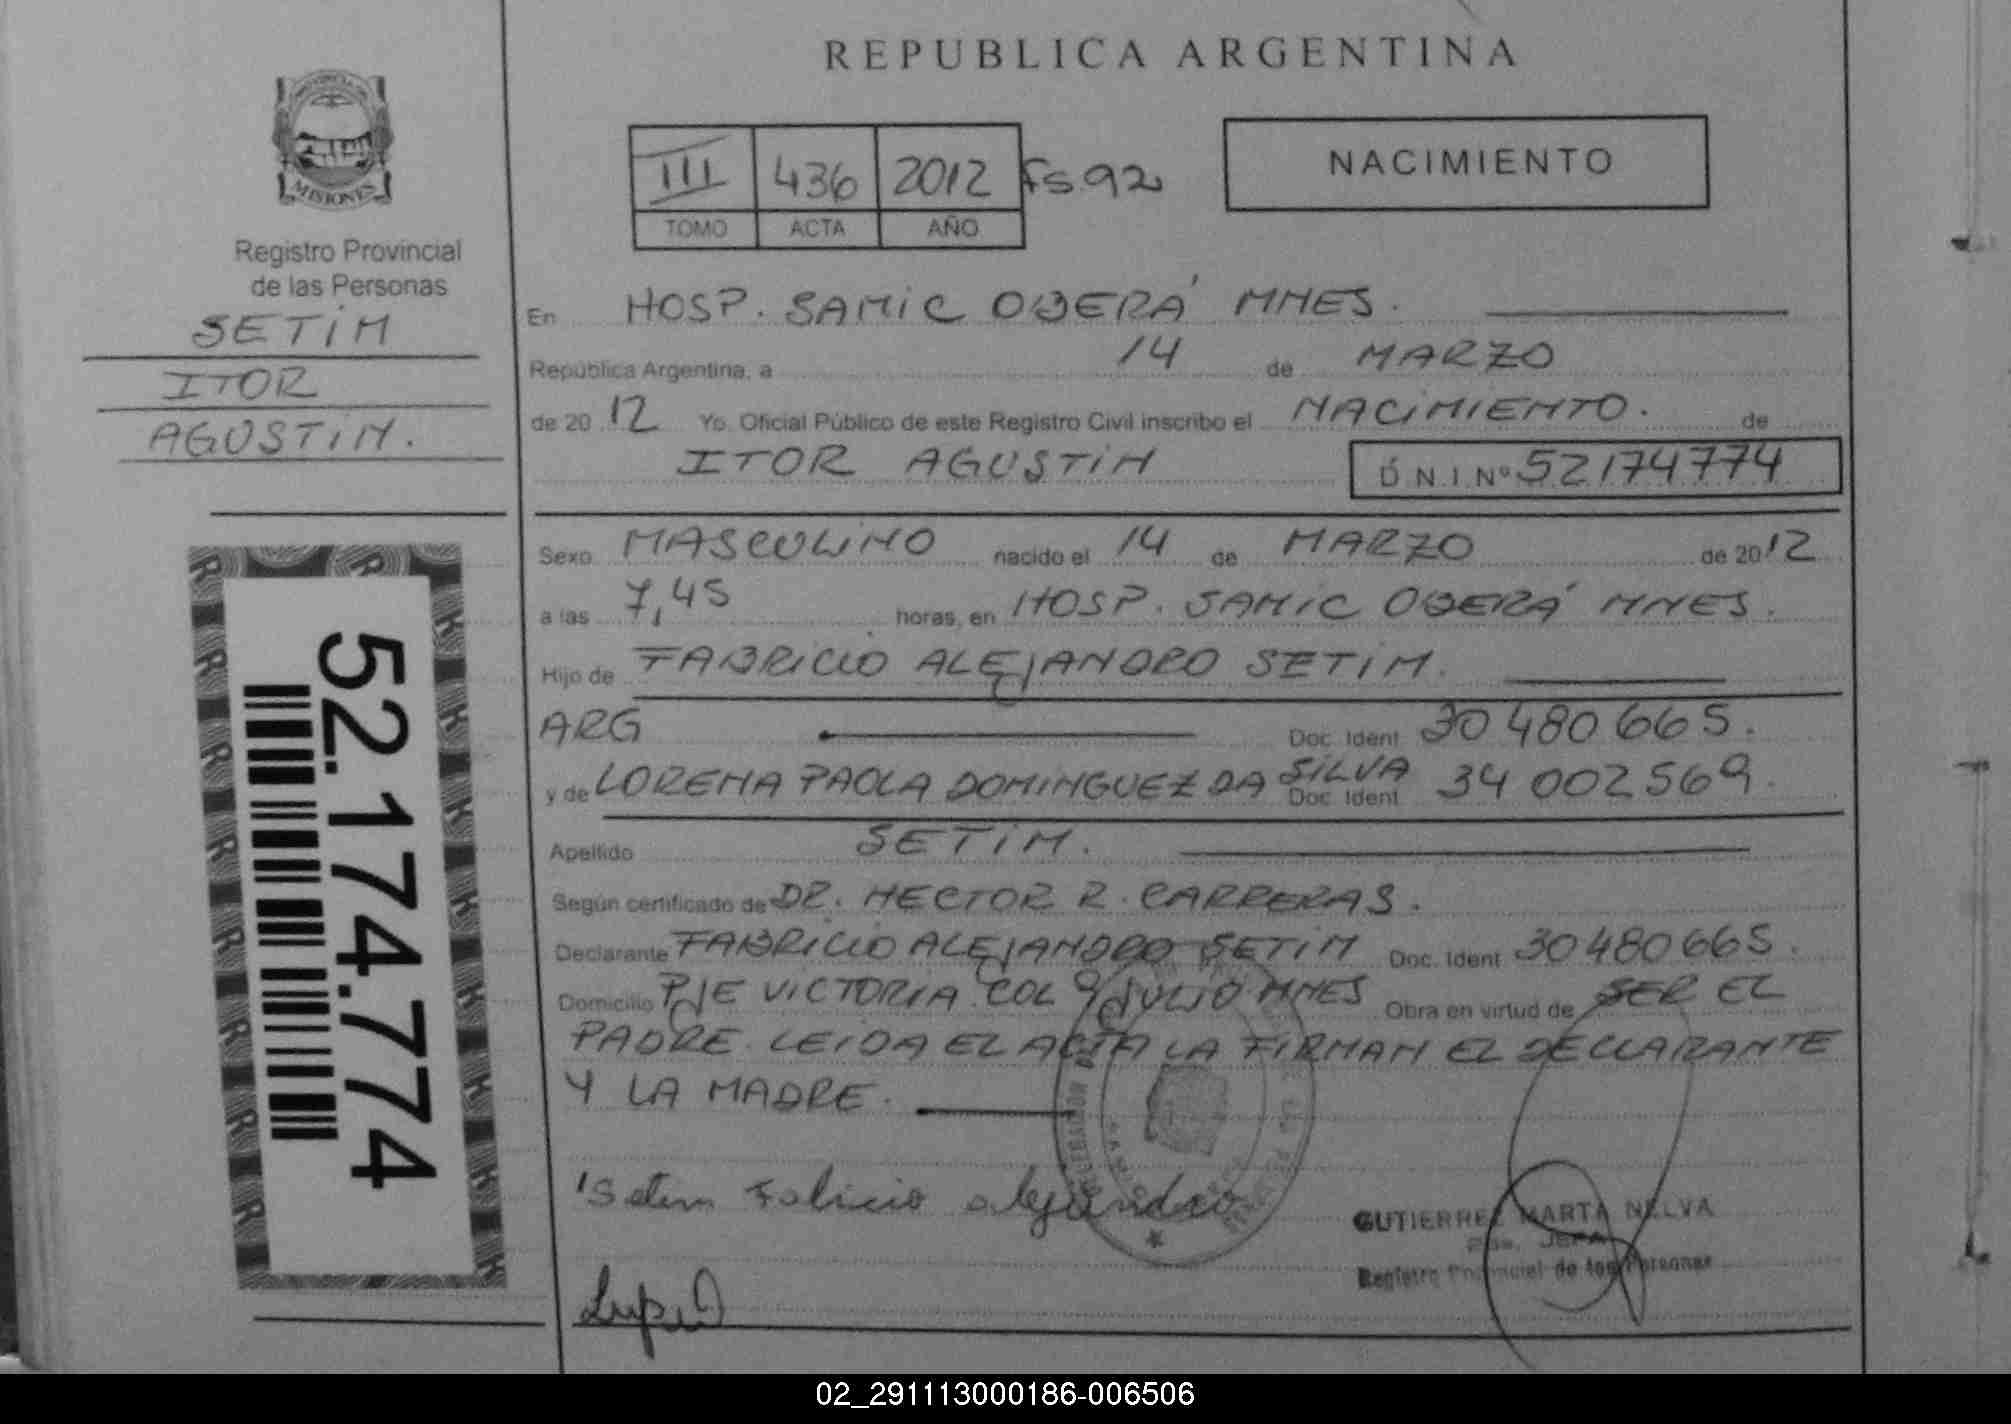 REPUBLICA ARGENTINA
PROVINCIA DE
MISIONES
Registro Provincial
de las Personas
SETIM
ITOR
AGUSTIN.
52.174.774
III 436 2012 Fs 92
TOMO ACTA AÑO
NACIMIENTO
En HOSP. SAMIC OBERÁ MNES.
República Argentina, a 14 de MARZO
de 2012 Yo Oficial Público de este Registro Civil inscribo el NACIMIENTO. de
ITOR AGUSTIN D.N.I.Nº 52174774
Sexo MASCULINO nacido el 14 de MARZO de 2012
a las 7,45 horas, en HOSP. SAMIC OBERÁ MNES.
Hijo de FABRICIO ALEJANDRO SETIM.
ARG Doc. Ident 30 480 665.
y de LORENA PAOLA DOMINGUEZ DA SILVA Doc. Ident 34 002 569.
Apellido SETIM.
Según certificado de DR. HECTOR R. CARRERAS.
Declarante FABRICIO ALEJANDRO SETIM Doc. Ident 30480665.
Domicilio PJE VICTORIA COL 9 JULIO MNES Obra en virtud de SER EL
PADRE. LEIDA EL ACTA LA FIRMAN EL DECLARANTE
Y LA MADRE.
Setim Fabricio alejandro
GUTIERREZ MARTA NELVA
JEFA
Registro Provincial de las Personas
02_291113000186-006506